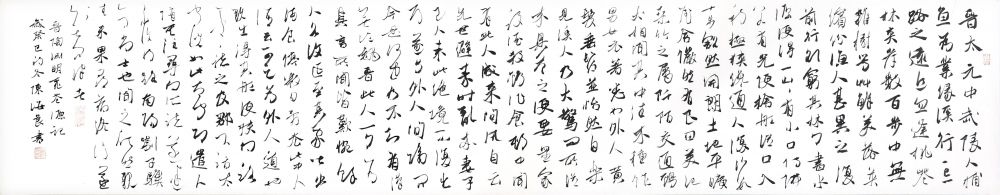 晋太元中武陵人捕
魚為業緣溪行忘
路之遠近忽逢桃花
林夾岸數百步中無
雜樹芳草鮮美落英
繽紛漁人甚異之復
前行欲窮其林林盡水
源便得一山山有小口彷彿
若有光便捨船從口入
初極狹才通人復行數
十步豁然開朗土地平曠
屋舍儼然有良田美池
桑竹之屬阡陌交通雞
犬相聞其中往來種作
男女衣著悉如外人黃
髮垂髫並怡然自樂
見漁人乃大驚問所
從來具答之便要還家
設酒殺雞作食村中聞
有此人咸來問訊自云
先世避秦時亂率妻子
邑人來此絕境不復出
焉遂與外人間隔問
今是何世乃不知有漢
無論魏晉此人一一為
具言所聞皆歎惋餘
人各復延至其家皆出
酒食停數日辭去此中人
語云不足為外人道也
既出得其船便扶向路
處處誌之及郡下詣太
守說如此太守即遣人
隨其往尋向所誌遂迷
不復得路南陽劉子驥
高尚士也聞之欣然規
往未果尋病終後遂
無問津者
晉陶淵明桃花源記
歲癸巳初冬陳海良書